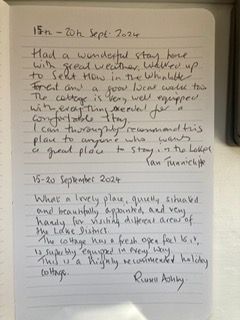 15th - 20th Sept. 2024
Had a wonderful stay here
with great weather. Walked up
to Seat How in the Whinlatter
Forest and a good local walk too
The cottage is very well equipped
with everything needed for a
comfortable stay.
I can thoroughly recommend this
place to anyone who wants
a great place to stay in the Lakes.
Ian Tunnicliffe
15-20 September 2024
What a lovely place, quietly situated
and beautifully appointed, and very
handy for visiting different areas of
the Lake District.
The cottage has a fresh open feel to it,
is superbly equipped in every way.
This is a highly recommended holiday
cottage.
Russell Ashby.